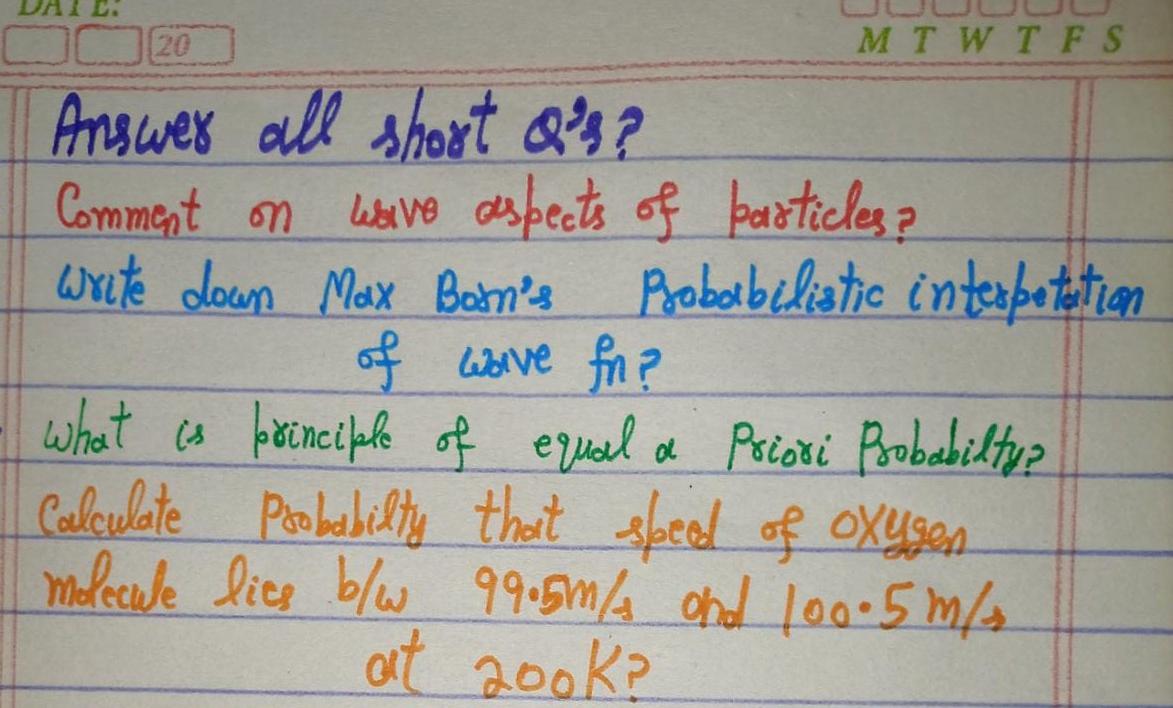 DATE:
20
M T W T F S
Answer all short Q's?
Comment on wave aspects of particles?
Write down Max Born's Probabilistic interpetation
of wave fn?
What is principle of equal a Priori Probabilty?
Calculate Probabilty that speed of oxygen
molecule lies b/w 99.5m/s and 100.5 m/s
at 200K?